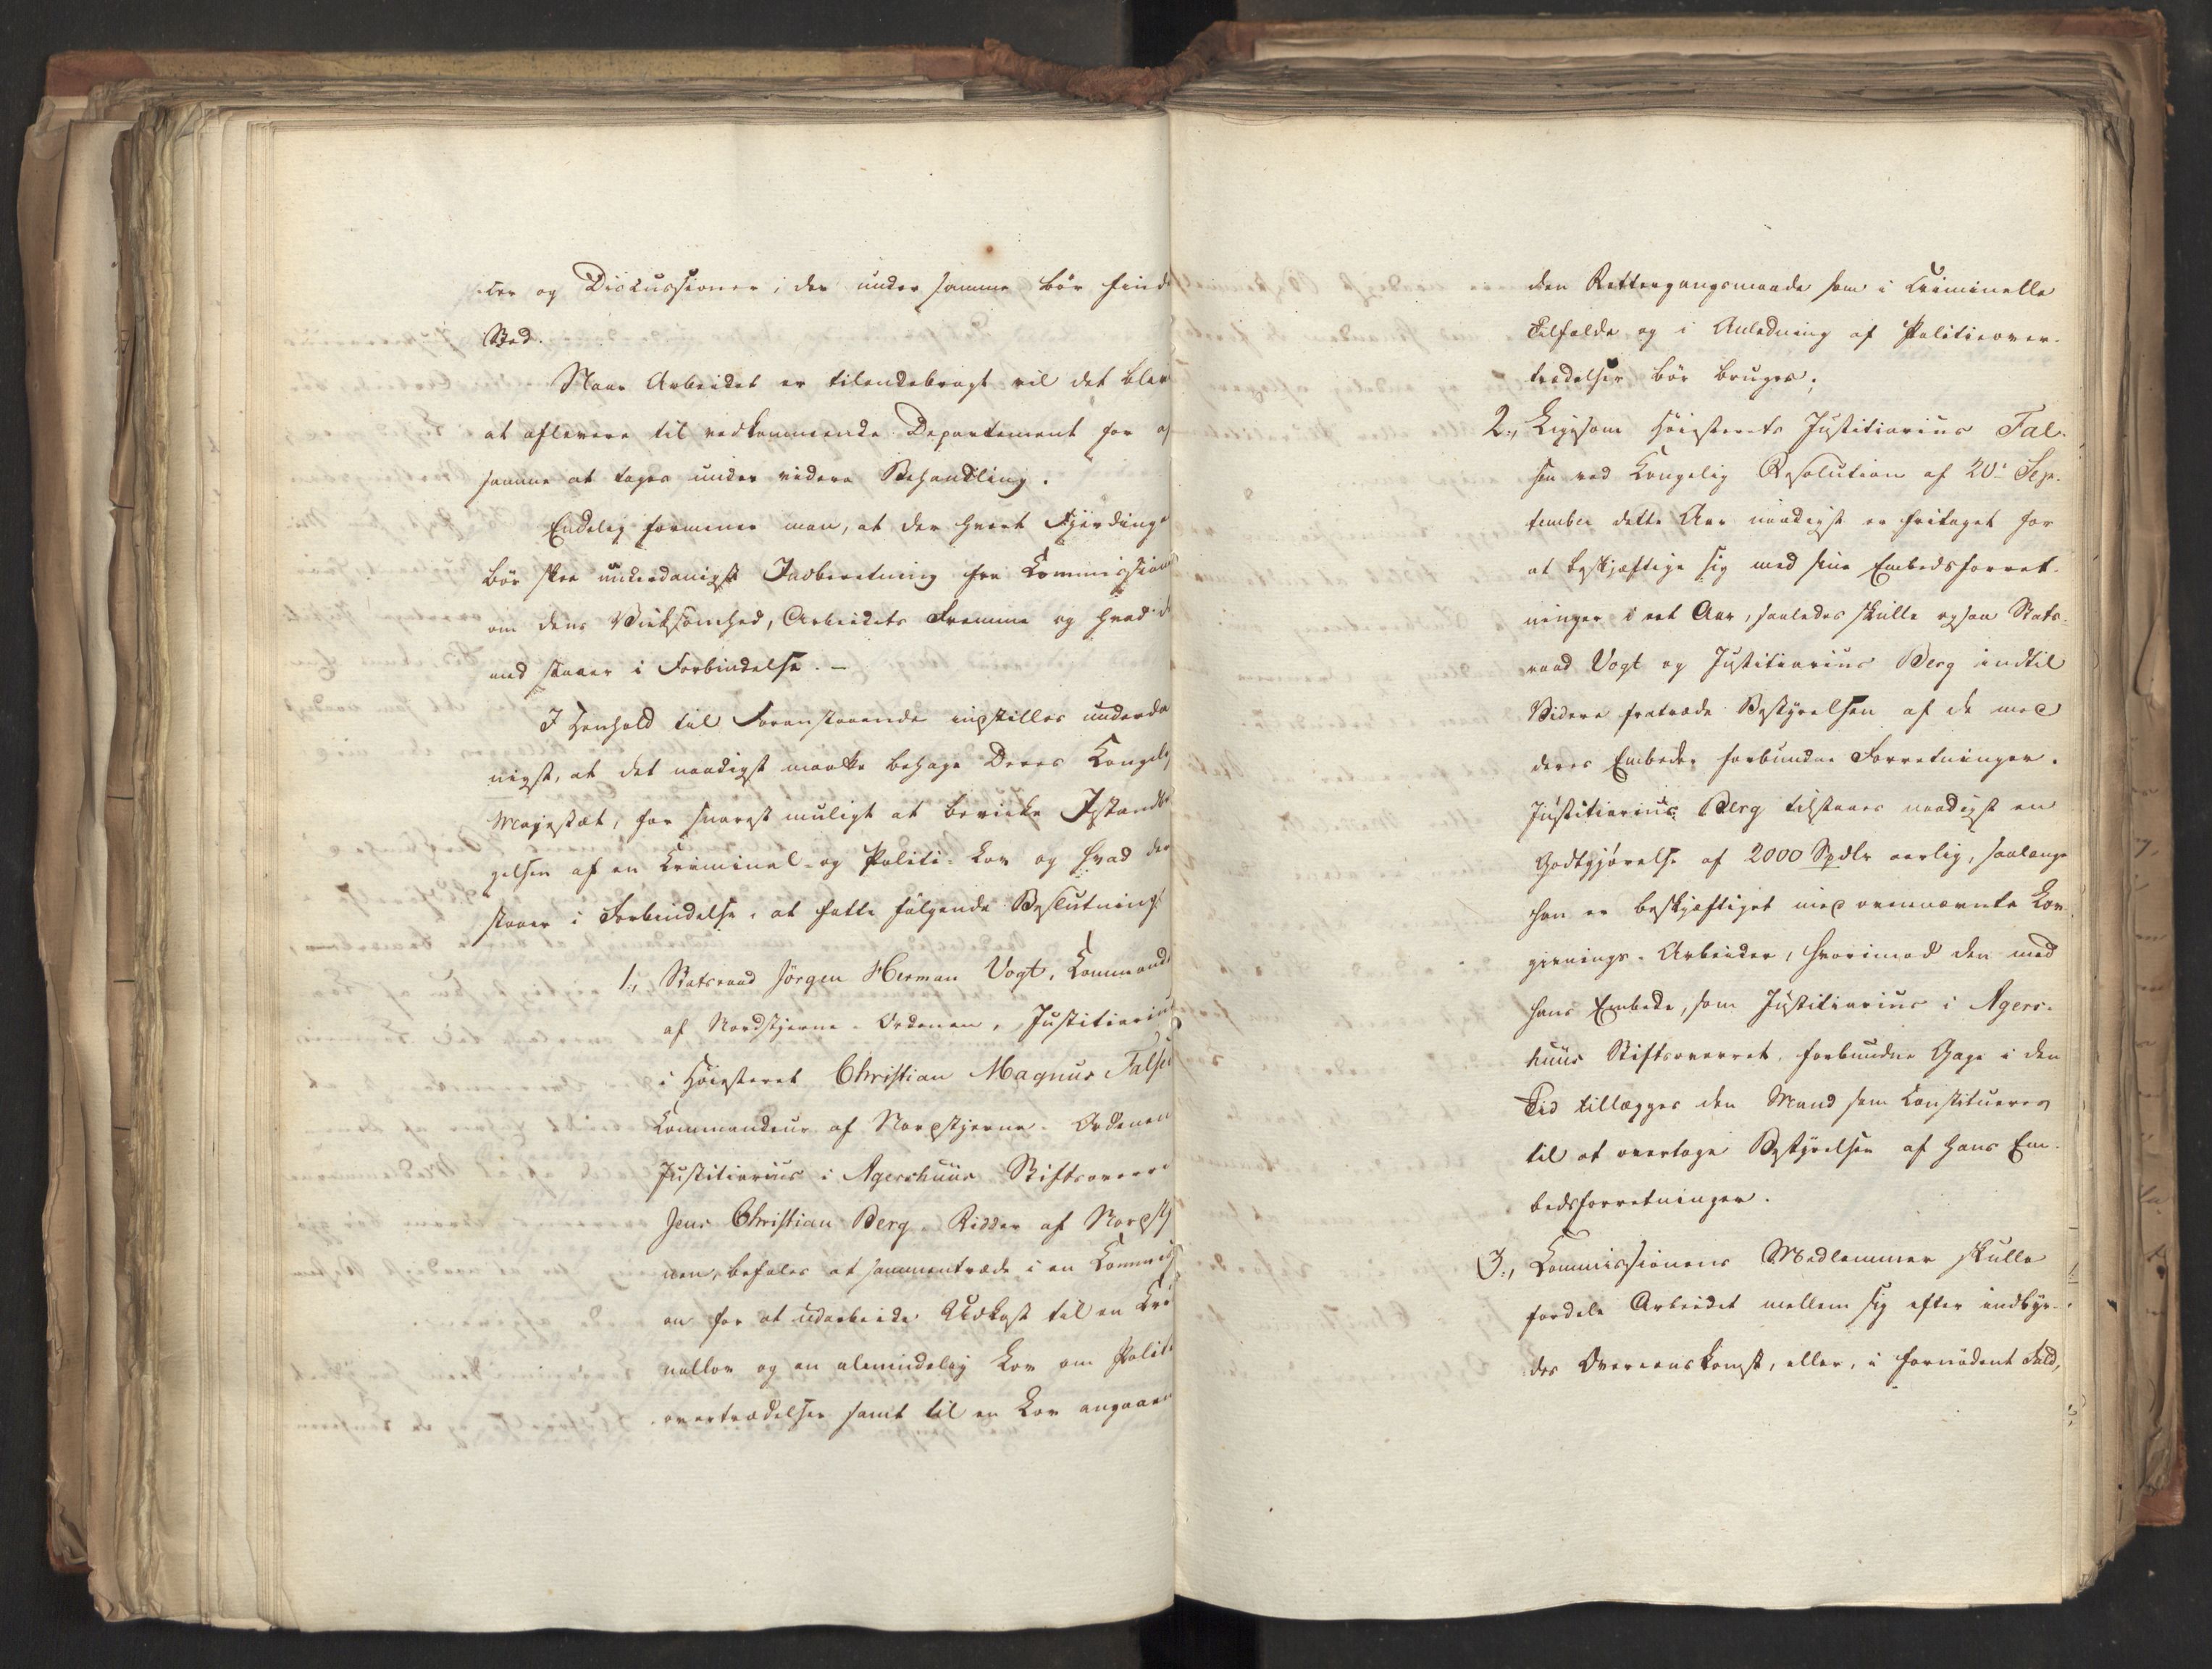 ser og Discussioner, der under samme bör finde
Sted.
Naar Arbeidet er tilendebragt vil det blive
at aflevere til vedkommende Departement for af
samme at tages under videre Behandling.
Endelig formener man, at der hvert Fjerding
bör skee underdanigst Indberetning fra Commission
om dens Virksomhed, Arbeidets Fremme og hvad d
med staaer i Forbindelse. -
I Henhold til Foranstaaende indstilles underda
nigst, at det naadigst maatte behage Deres Kongelig
Majestæt, for snarest muligt at bevirke Istandbr
gelsen af en Criminal- og Politi-Lov og hvad der
staaer i Forbindelse, at fatte fölgende Beslutning:
1., Statsraad Jörgen Herman Vogt, Commande
af Nordstjerne-Ordenen, Justitiarius
i Höiesteret Christian Magnus Falsen
Commandeur af Nordstjerne-Ordenen
Justitiarius i Agershuus Stiftsoverr
Jens Christian Berg, Ridder af Nordstj
nen, befales at sammentræde i en Commis
on for at udarbeide Udkast til en Cri
nallov og en almindelig Lov om Politi
overtrædelser samt til en Lov angaaen
den Rettergangsmaade som i Criminelle
Tilfælde og i Anledning af Politieover-
trædelser bör bruges;
2., Ligesom Höiesterets Justitiarius Fal-
sen ved Kongelig Resolution af 20de Sep-
tember dette Aar naadigst er fritaget for
at beskjæftige sig med sine Embedsforret-
ninger i eet Aar, saaledes skulle ogsaa Stats-
raad Vogt og Justitiarius Berg indtil
Videre fratræde Bestyrelsen af de med
deres Embeder forbundne Forretninger.
Justitiarius Berg tilstaaes naadigst en
Godtgjörelse af 2000 Spdlr aarlig, saalænge
han er beskjæftiget med ovennævnte Lov-
givnings-Arbeider, hvorimod den med
hans Embede, som Justitiarius i Agers-
huus Stiftsoverret, forbundne Gage i den
Tid tillægges den Mand som Constitueres
til at overtage Bestyrelsen af hans Em-
bedsforretninger.
3., Commissionens Medlemmer skulle
fordele Arbeidet mellem sig efter indbyr-
des Overeenskomst, eller, i fornödent Fald,